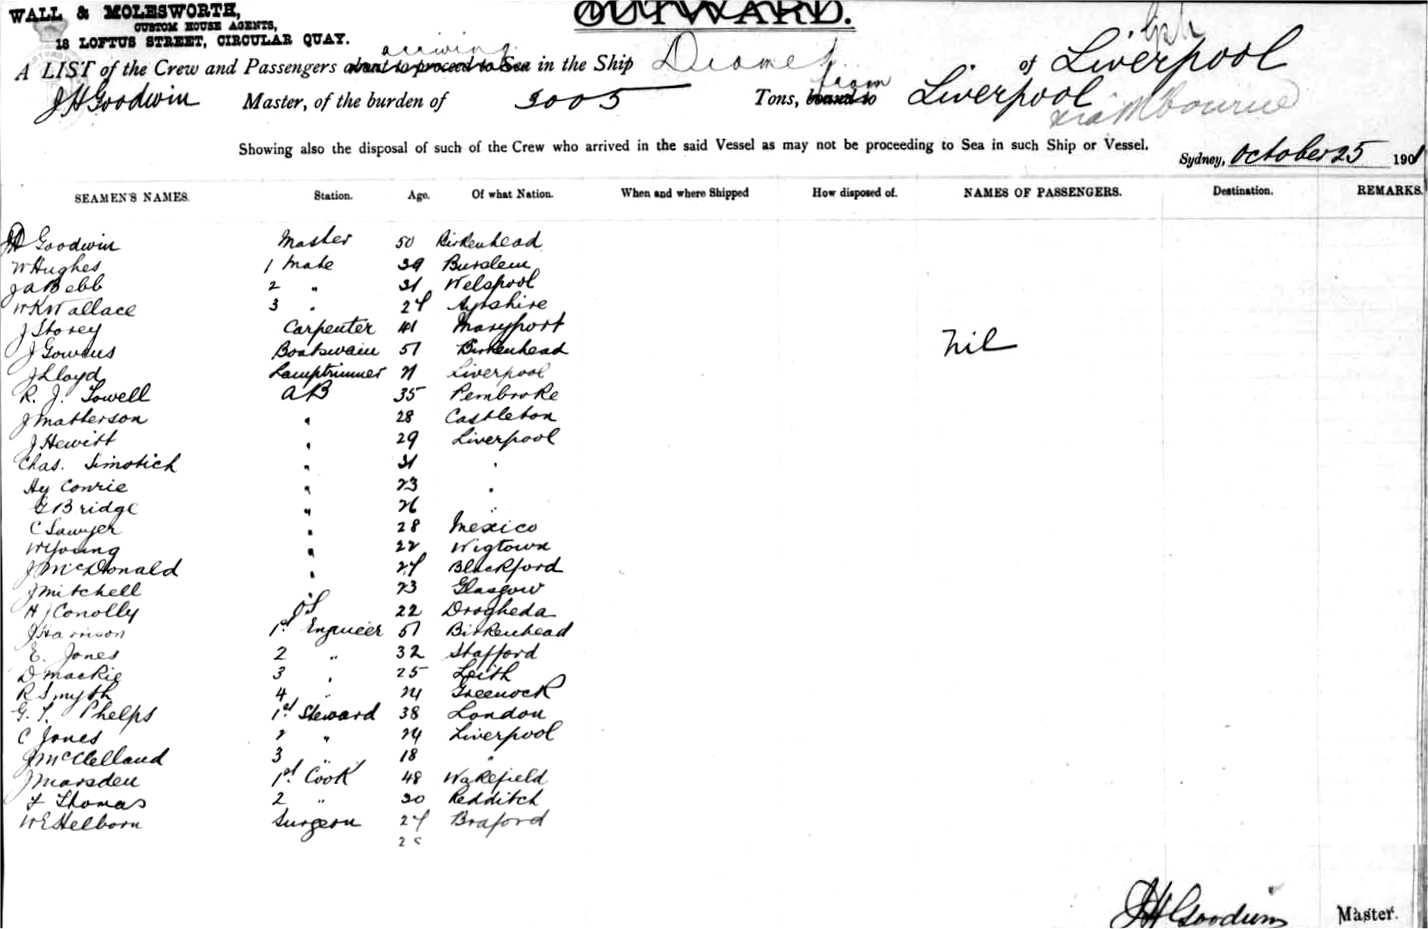 WALL & MOLESWORTH,
CUSTOM HOUSE AGENTS,
18 LOFTUS STREET, CIRCULAR QUAY.
OUTWARD.
A LIST of the Crew and Passengers arriving about to proceed to Sea in the Ship Diomed of Liverpool
J H Goodwin Master, of the burden of 3005 Tons, from bound to Liverpool via Mbourne
Showing also the disposal of such of the Crew who arrived in the said Vessel as may not be proceeding to Sea in such Ship or Vessel.
Sydney, October 25 1901
SEAMEN'S NAMES. Station. Age. Of what Nation. When and where Shipped How disposed of. NAMES OF PASSENGERS. Destination. REMARKS.
JH Goodwin Master 50 Birkenhead
W Hughes 1 Mate 39 Burslem
J A Bebb 2 " 31 Welspool
W K Wallace 3 " 27 Ayrshire
J Storey Carpenter 41 Maryport
J Gowans Boatswain 51 Birkenhead
Nil
J Lloyd Lamptrimmer 21 Liverpool
R. J. Towell AB 35 Pembroke
J Matherson " 28 Castleton
J Hewitt " 29 Liverpool
Chas. Timotich " 31 "
Hy Conrie " 23 "
G Bridge " 26 "
C Sawyer " 28 Mexico
W Young " 22 Wigtown
J McDonald " 27 Blackford
J Mitchell " 23 Glasgow
H J Conolly OS 22 Drogheda
J Harrison 1st Engineer 51 Birkenhead
E. Jones 2 " 32 Stafford
D Mackie 3 " 25 Leith
R Smyth 4 " 24 Greenock
G. T. Phelps 1st Steward 38 London
C Jones 2 " 24 Liverpool
J McClelland 3 " 18 "
J Marsden 1st Cook 48 Wakefield
F Thomas 2 " 20 Redditch
W E Helborn Surgeon 27 Braford
J H Goodwin Master.